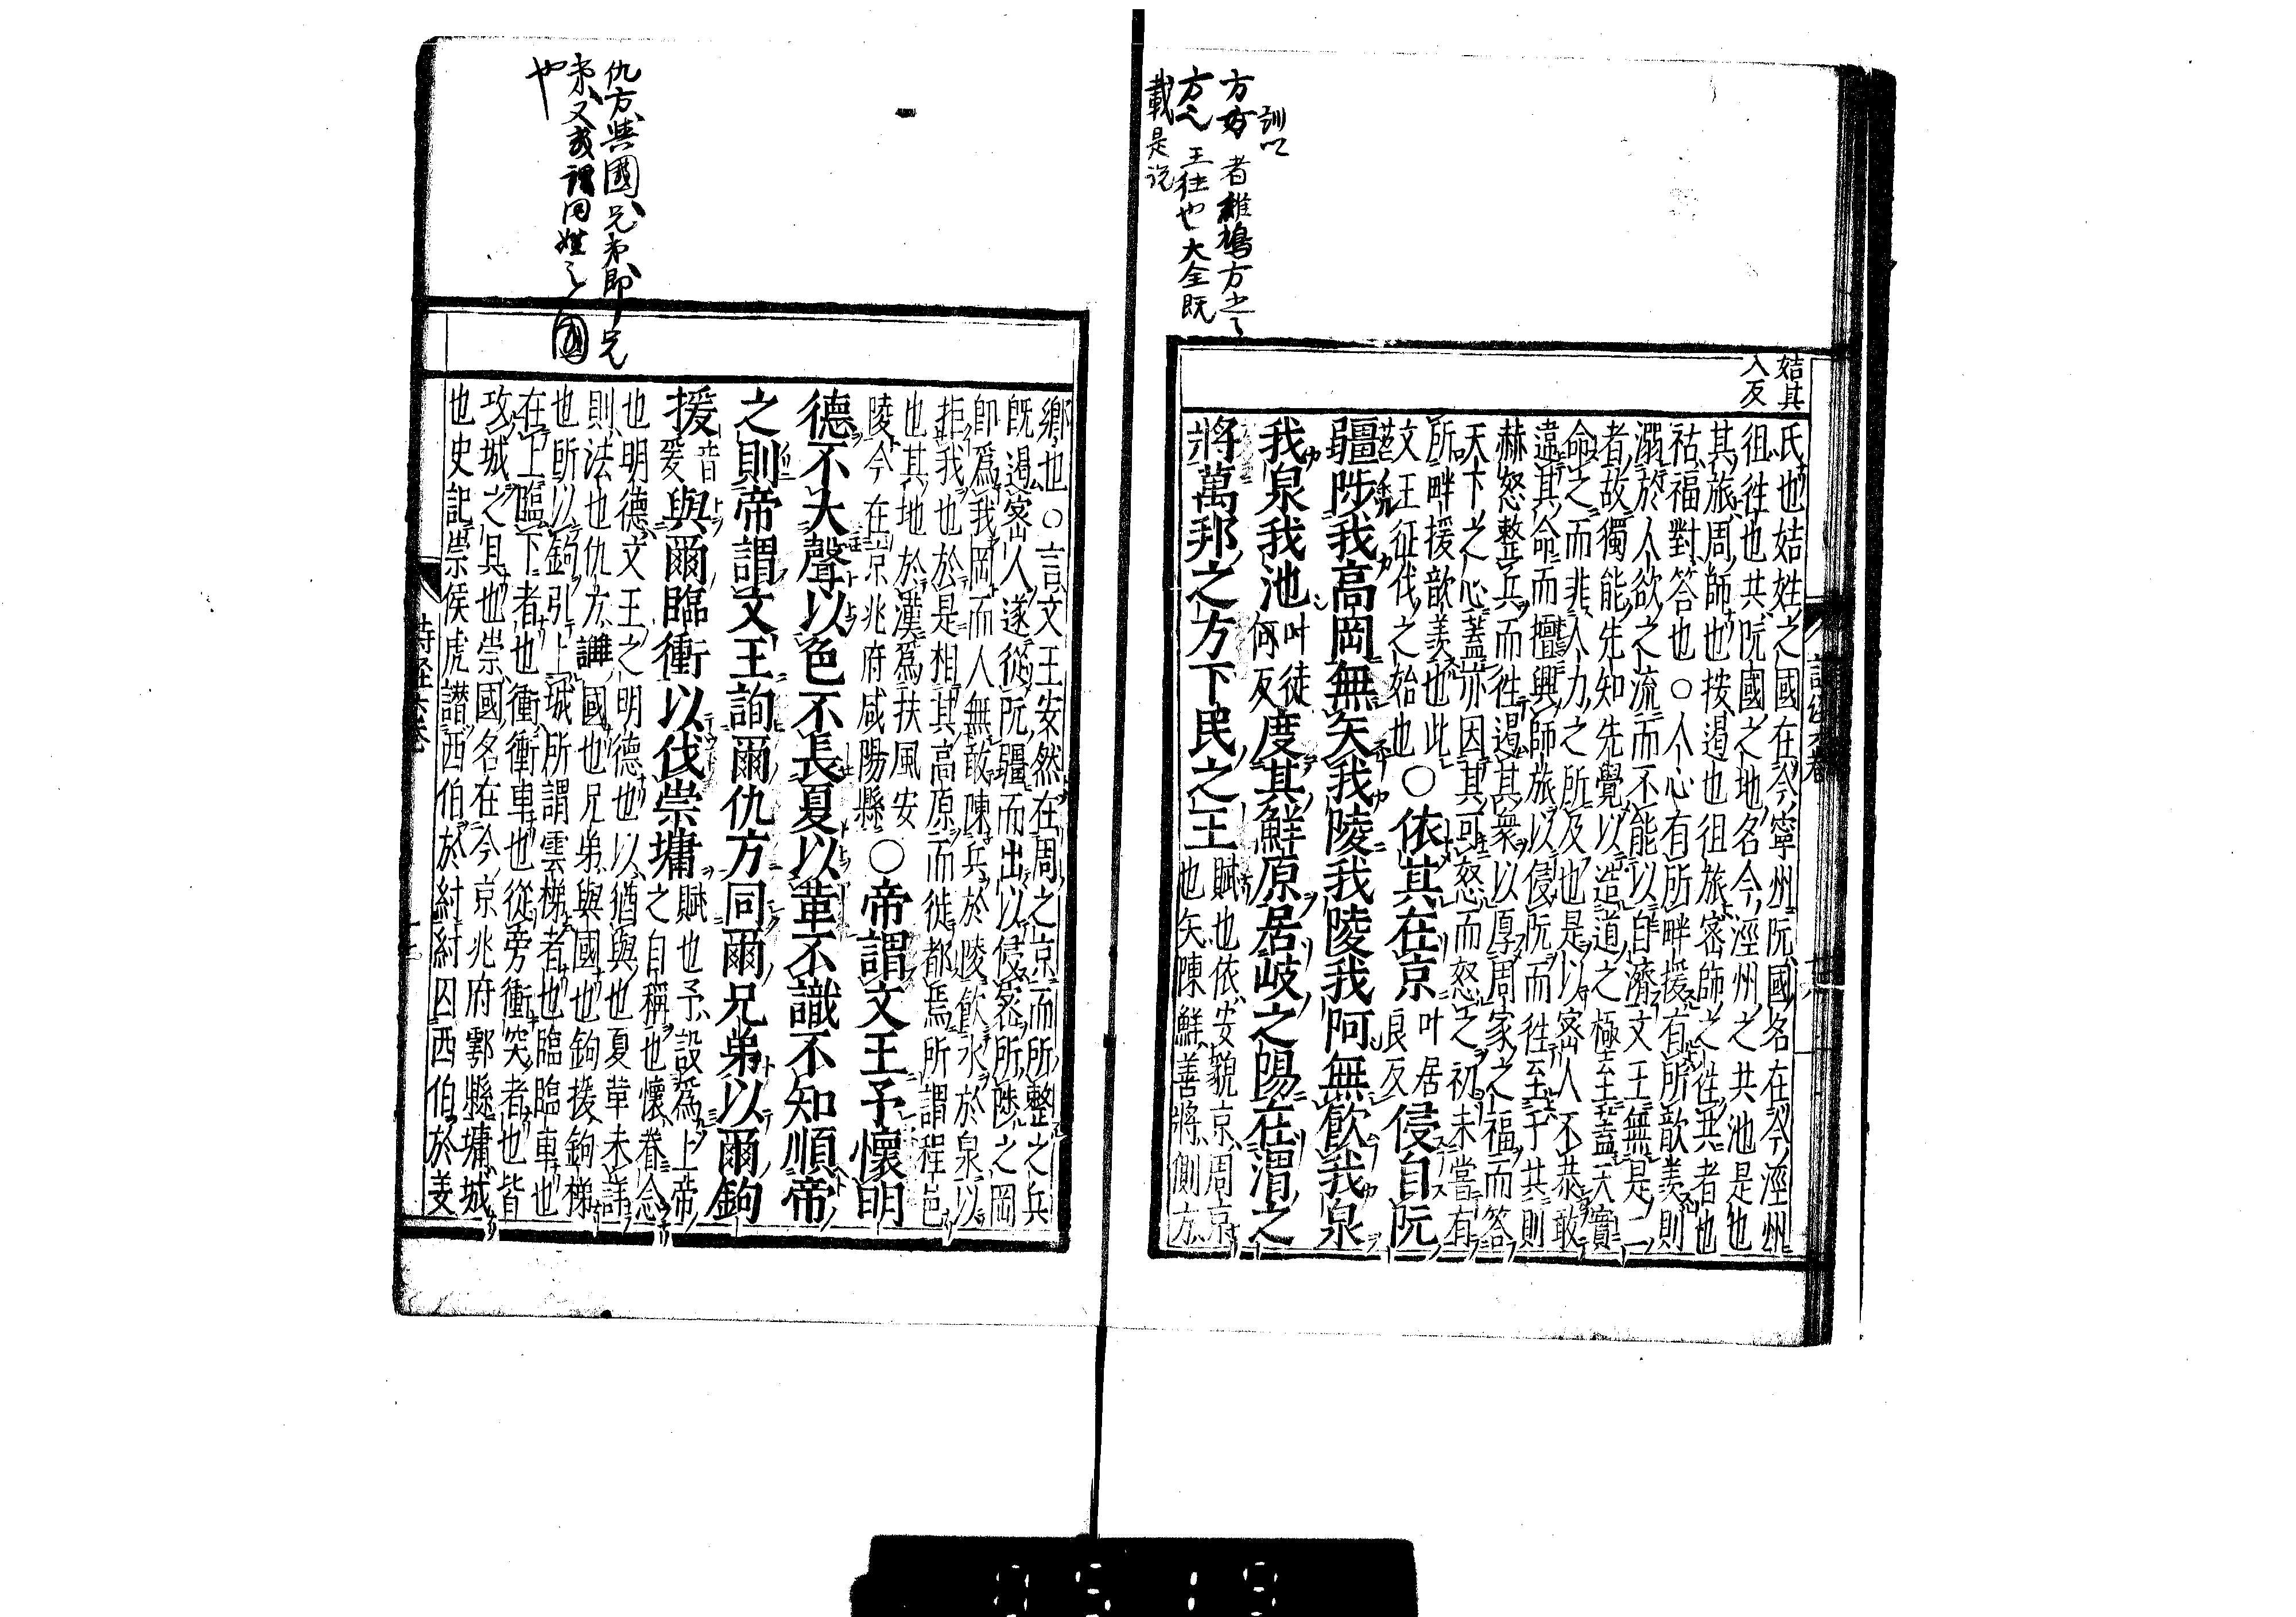 姞其
入反
氏也姞姓之國在今寧州阮國名在今涇州
徂徃也共阮國之地名今涇州之共池是也
其旅周師也按遏也徂旅密師之徃共者也
祜福對答也○人心有所畔援有所歆羨則
溺於人欲之流而不能以自濟文王無是二
者故獨能先知先覺以造道之極至蓋天實
命之而非人力之所及也是以密人不恭敢
違其命而擅興師旅以侵阮而徃至于共則
赫怒整兵而徃遏其衆以厚周家之福而答
天下之心蓋亦因其可怒而怒之初未嘗有
所畔援歆羨也此
文王征伐之始也○依其在京叶居良反侵自阮
疆陟我高岡無矢我陵我陵我阿無飮我泉
我泉我池叶徒何反度其鮮原居岐之陽在渭之
將萬邦之方下民之王賦也依安貌京周京
也矢陳鮮善將側方
鄉也○言文王安然在周之京而所整之兵
旣遏密人遂從阮疆而出以侵密所陟之岡
卽爲我岡而人無敢陳兵於陵飮水於泉以
拒我也於是相其高原而徙都焉所謂程邑
也其地於漢爲扶風安
陵今在京兆府咸陽縣○帝謂文王予懷明
德不大聲以色不長夏以革不識不知順帝
之則帝謂文王詢爾仇方同爾兄弟以爾鉤
援音爰與爾臨衝以伐崇墉賦也予設爲上帝
之自稱也懷眷念
也明德文王之明德也以猶與也夏革未詳
則法也仇方讎國也兄弟與國也鉤援鉤梯
也所以鉤引上城所謂雲梯者也臨臨車也
在上臨下者也衝衝車也從旁衝突者也皆
攻城之具也崇國名在今京兆府鄠縣墉城
也史記崇侯虎譖西伯於紂紂囚西伯於姜
訓以
者雎鳩方之
方之王徃也大全既
載是説
仇方與國兄弟即兄
弟又或謂同姓之國
也